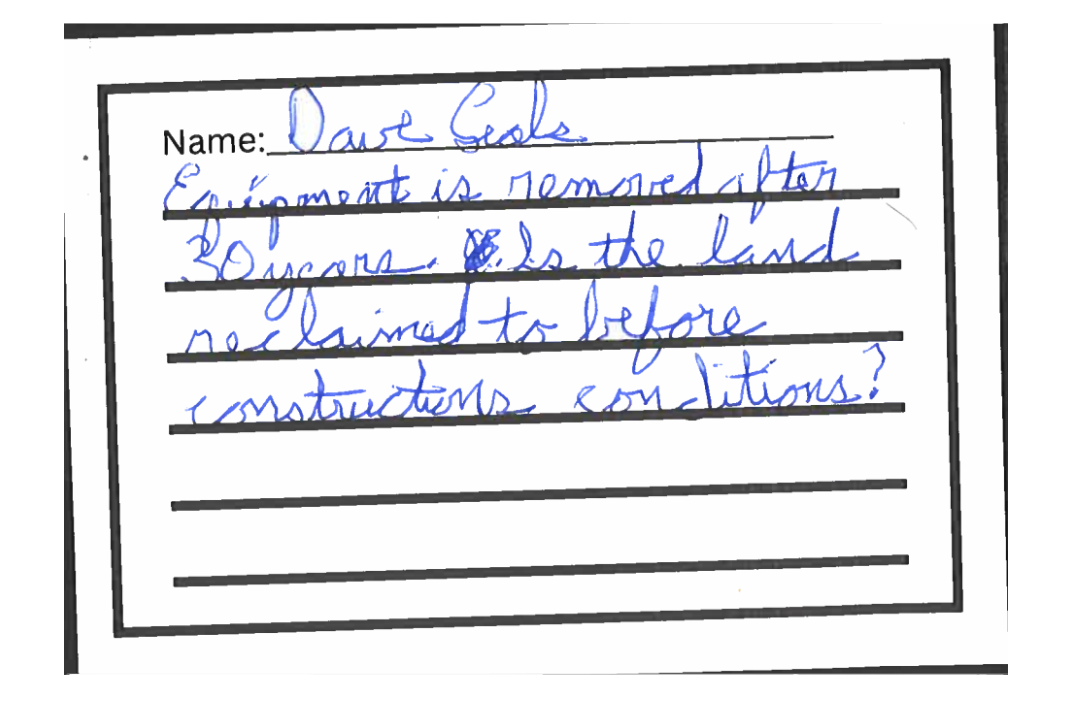 Name: Dave
Equipment is removed after
30 years. Is the land
reclaimed to before
constructions conditions?